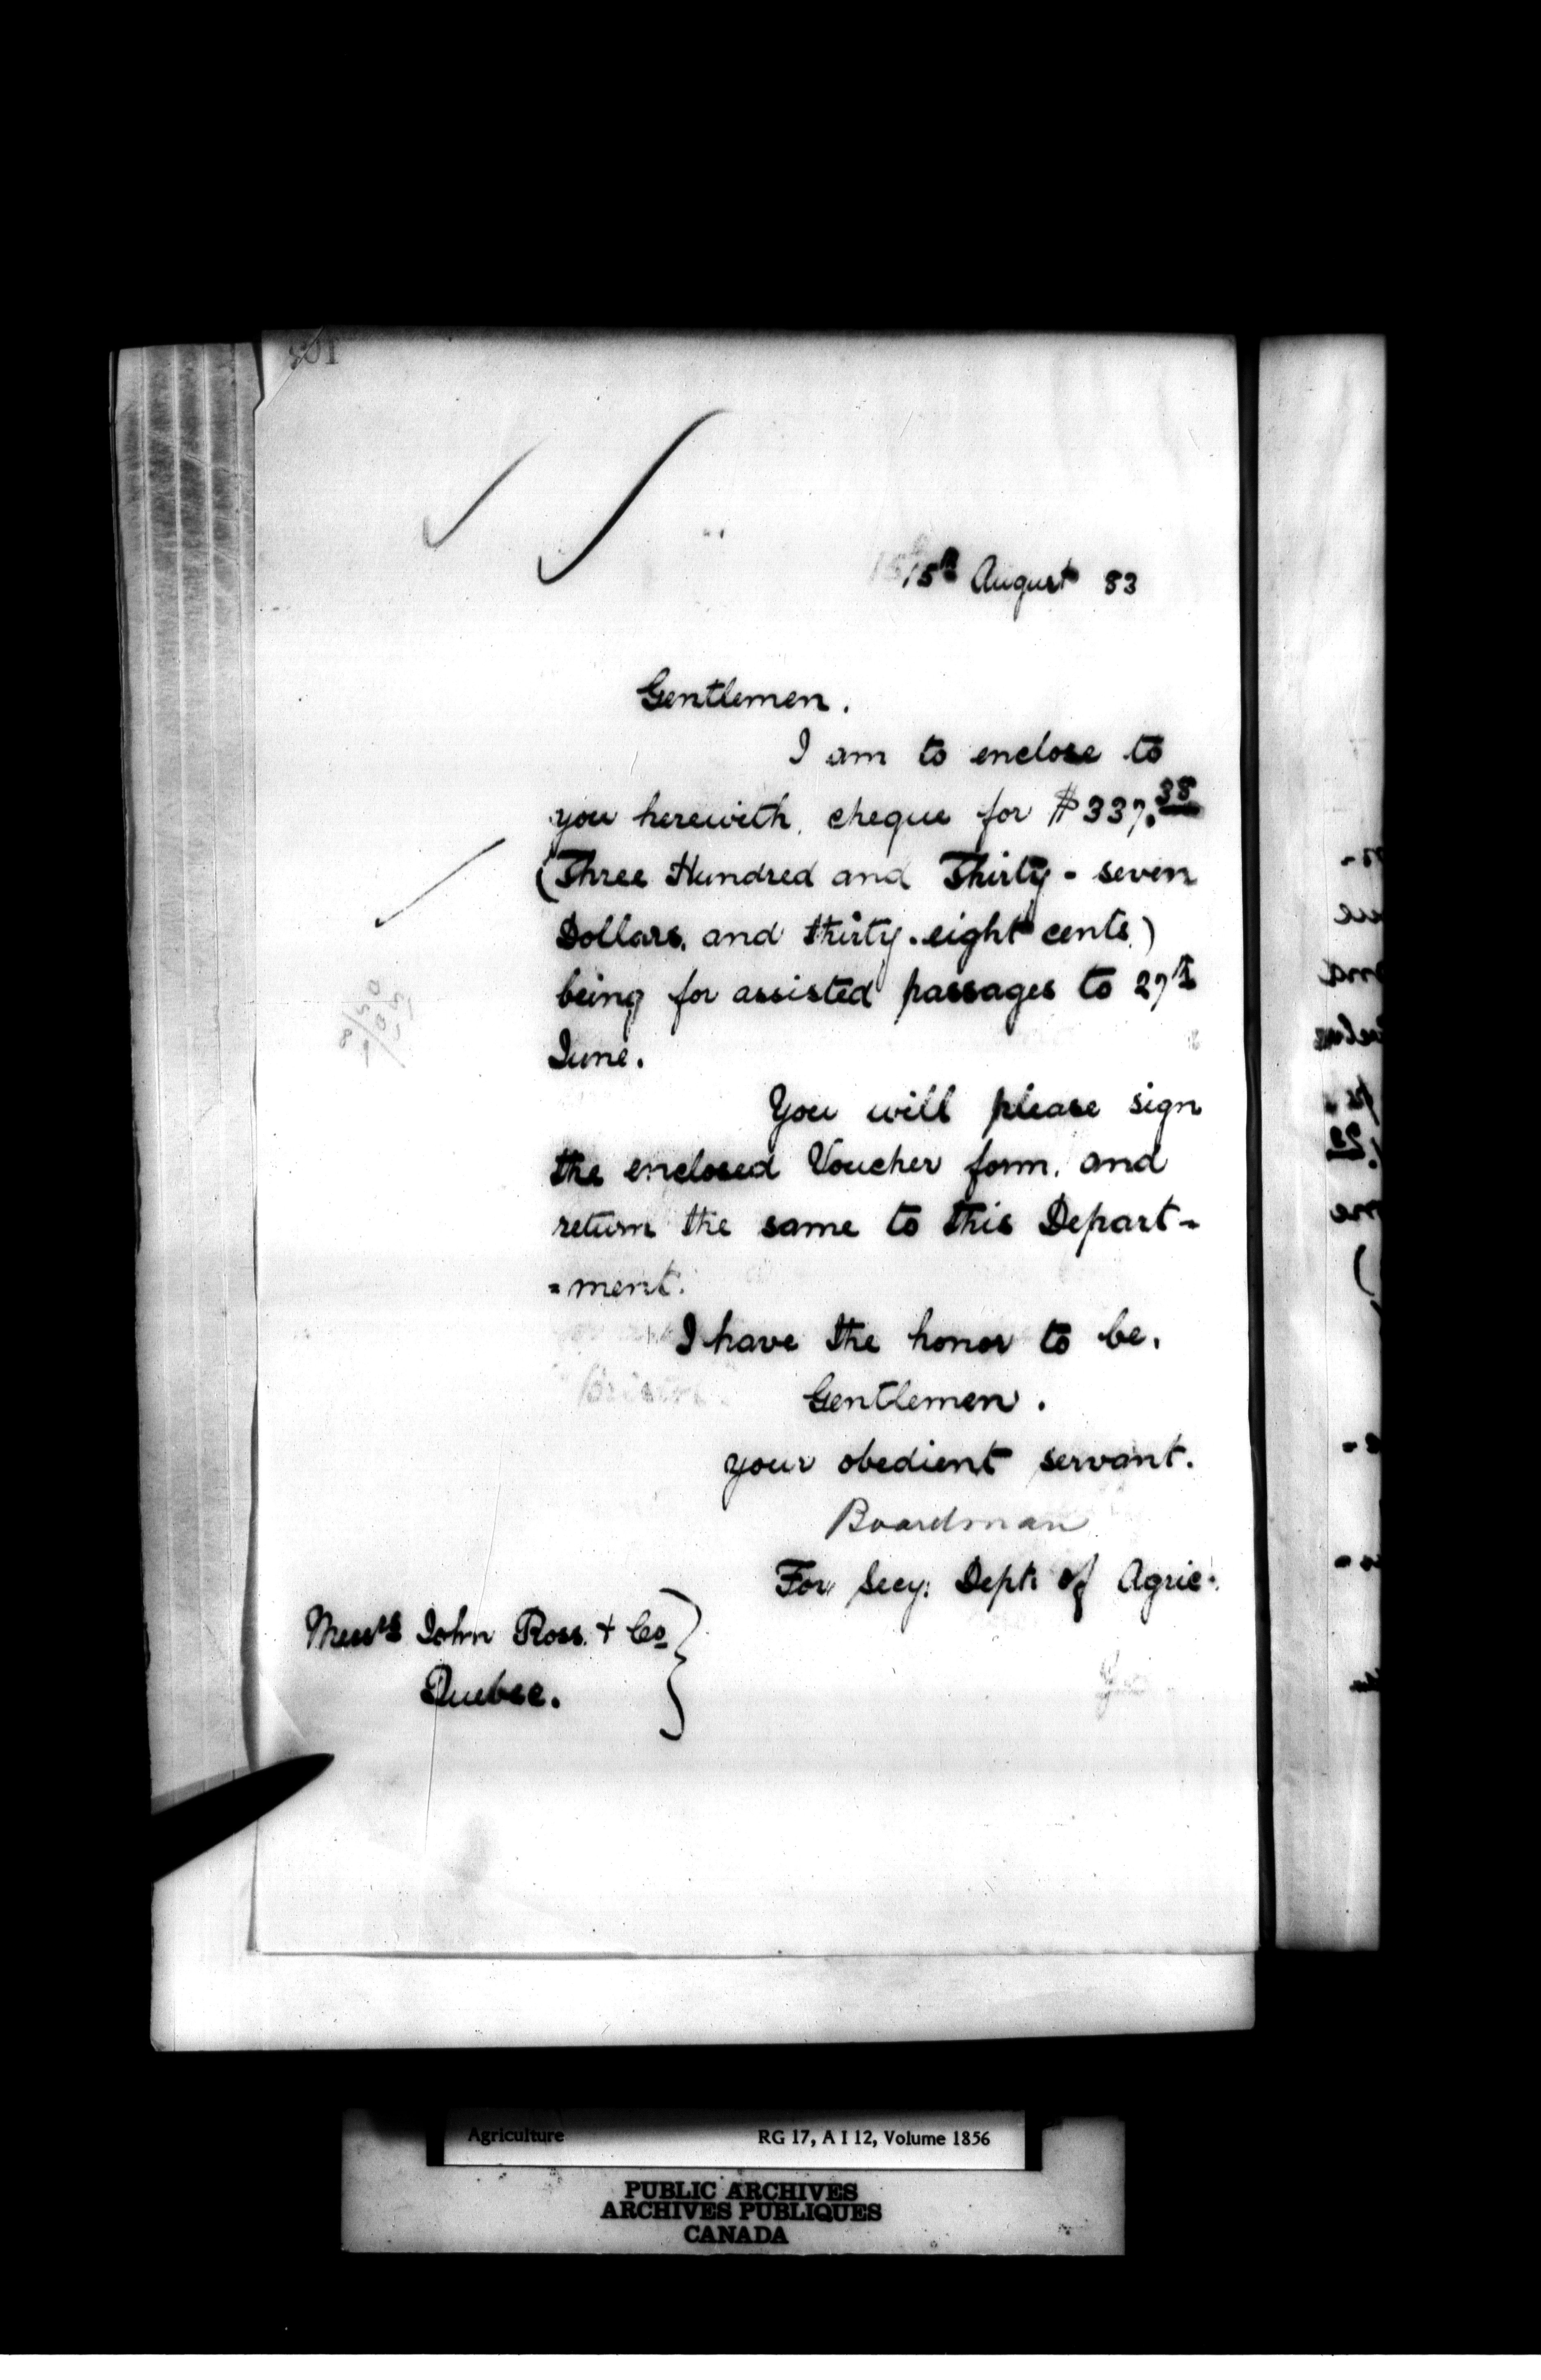 15th August 83
Gentlemen.
I am to enclose to
you herewith, cheque for $337.38
(Three Hundred and Thirty-seven
Dollars, and thirty-eight cents)
being for assisted passages to 27th
June.
You will please sign
the enclosed Voucher form, and
return the same to this Depart-
-ment.
I have the honor to be,
Gentlemen.
your obedient servant.
Boardman
For Secy. Dept. of Agric.
Messrs John Ross. + Co
Quebec.
Agriculture RG 17, A I 12, Volume 1856
PUBLIC ARCHIVES
ARCHIVES PUBLIQUES
CANADA